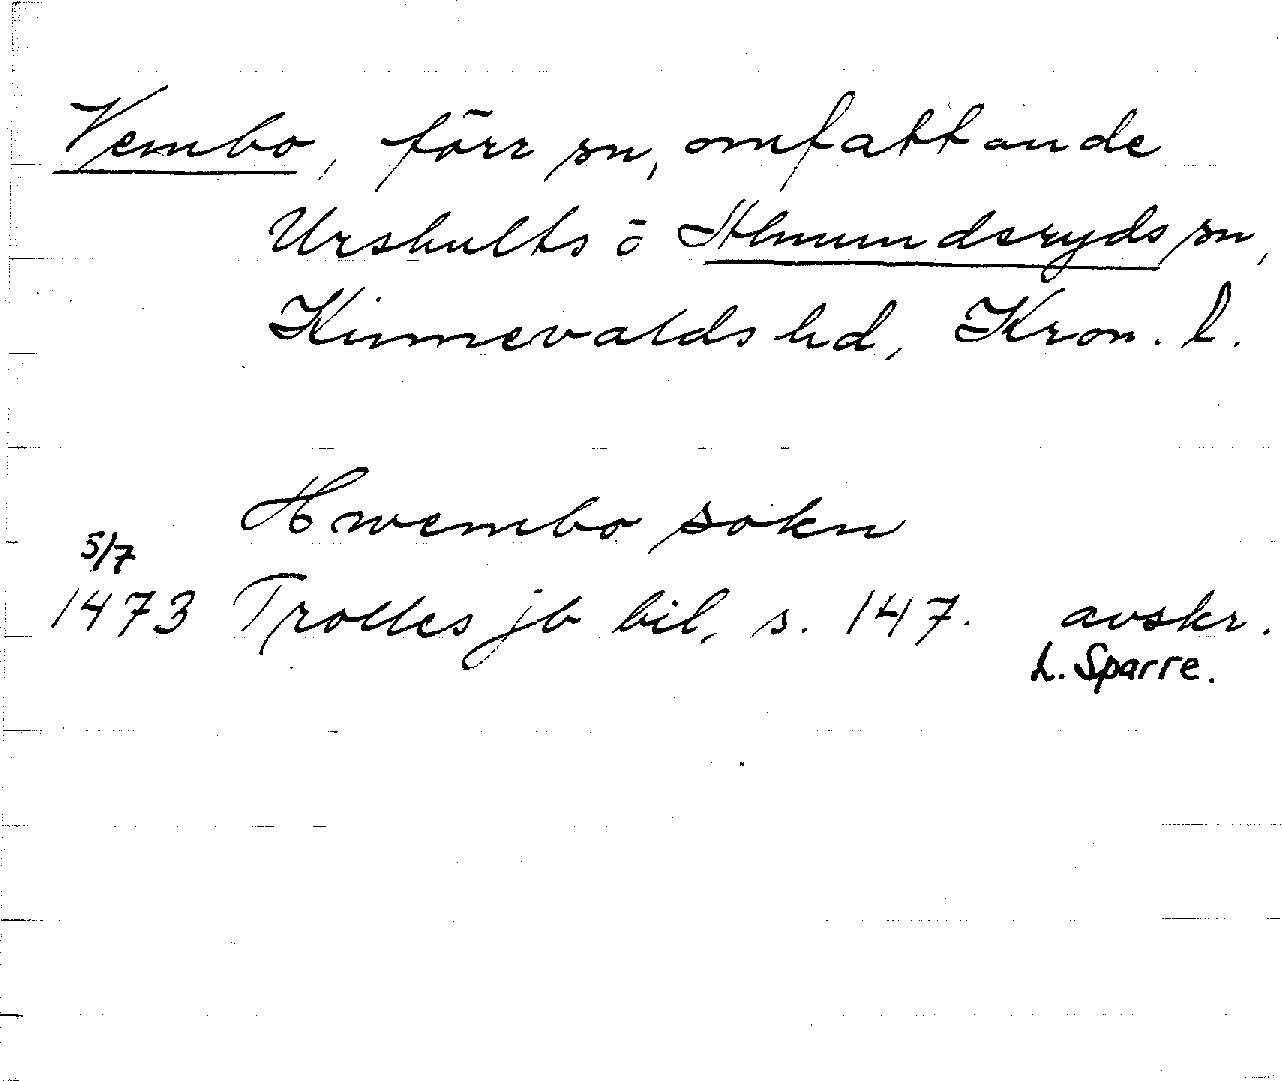 Vembo, förr sn, omfattande
Urshults o Almundsryds sn,
Kinnevalds hd, Kron. l.
Hwembo sokn
5/7
1473 Trolles jb bil, s. 147. avskr.
L. Sparre.